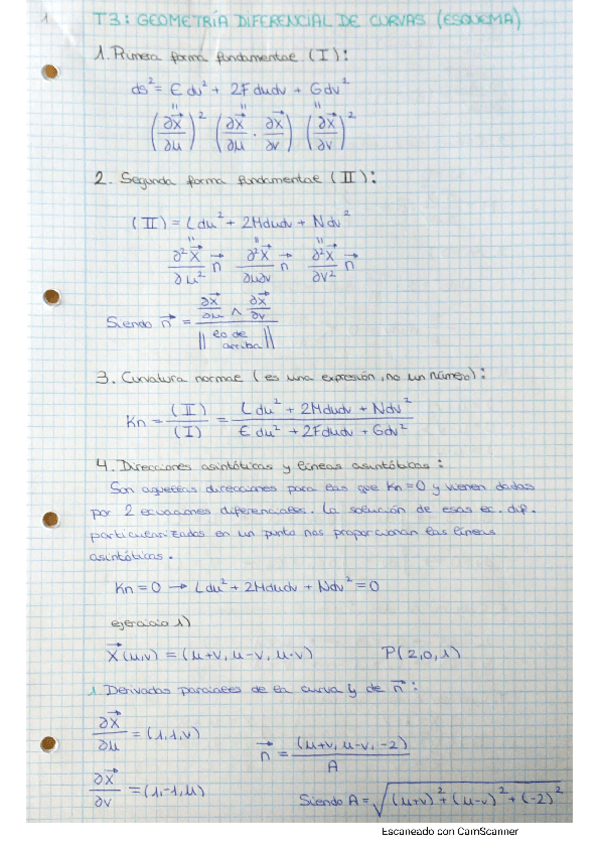 1 T3: GEOMETRÍA DIFERENCIAL DE CURVAS (ESQUEMA)
1. Primera forma fundamental (I):
ds² = E du² + 2F dudv + G dv²
(∂x⃗/∂u)² (∂x⃗/∂u · ∂x⃗/∂v) (∂x⃗/∂v)²
2. Segunda forma fundamental (II):
(II) = L du² + 2M dudv + N dv²
∂²x⃗/∂u² n⃗ ∂²x⃗/∂u∂v n⃗ ∂²x⃗/∂v² n⃗
Siendo n⃗ = (∂x⃗/∂u ∧ ∂x⃗/∂v) / ||lo de arriba||
3. Curvatura normal (es una expresión, no un número):
Kn = (II)/(I) = (L du² + 2M dudv + N dv²)/(E du² + 2F dudv + G dv²)
4. Direcciones asintóticas y líneas asintóticas:
Son aquellas direcciones para las que Kn = 0 y vienen dadas
por 2 ecuaciones diferenciales. La solución de esas ec. dif.
particularizadas en un punto nos proporcionan las líneas
asintóticas.
Kn = 0 → L du² + 2M dudv + N dv² = 0
ejercicio 1)
X⃗(u,v) = (u+v, u-v, u·v) P(2,0,1)
1. Derivadas parciales de la curva y de n⃗:
∂x⃗/∂u = (1,1,v)
n⃗ = (u+v, u-v, -2)/A
∂x⃗/∂v = (1,-1,u)
Siendo A = √((u+v)² + (u-v)² + (-2)²)
Escaneado con CamScanner